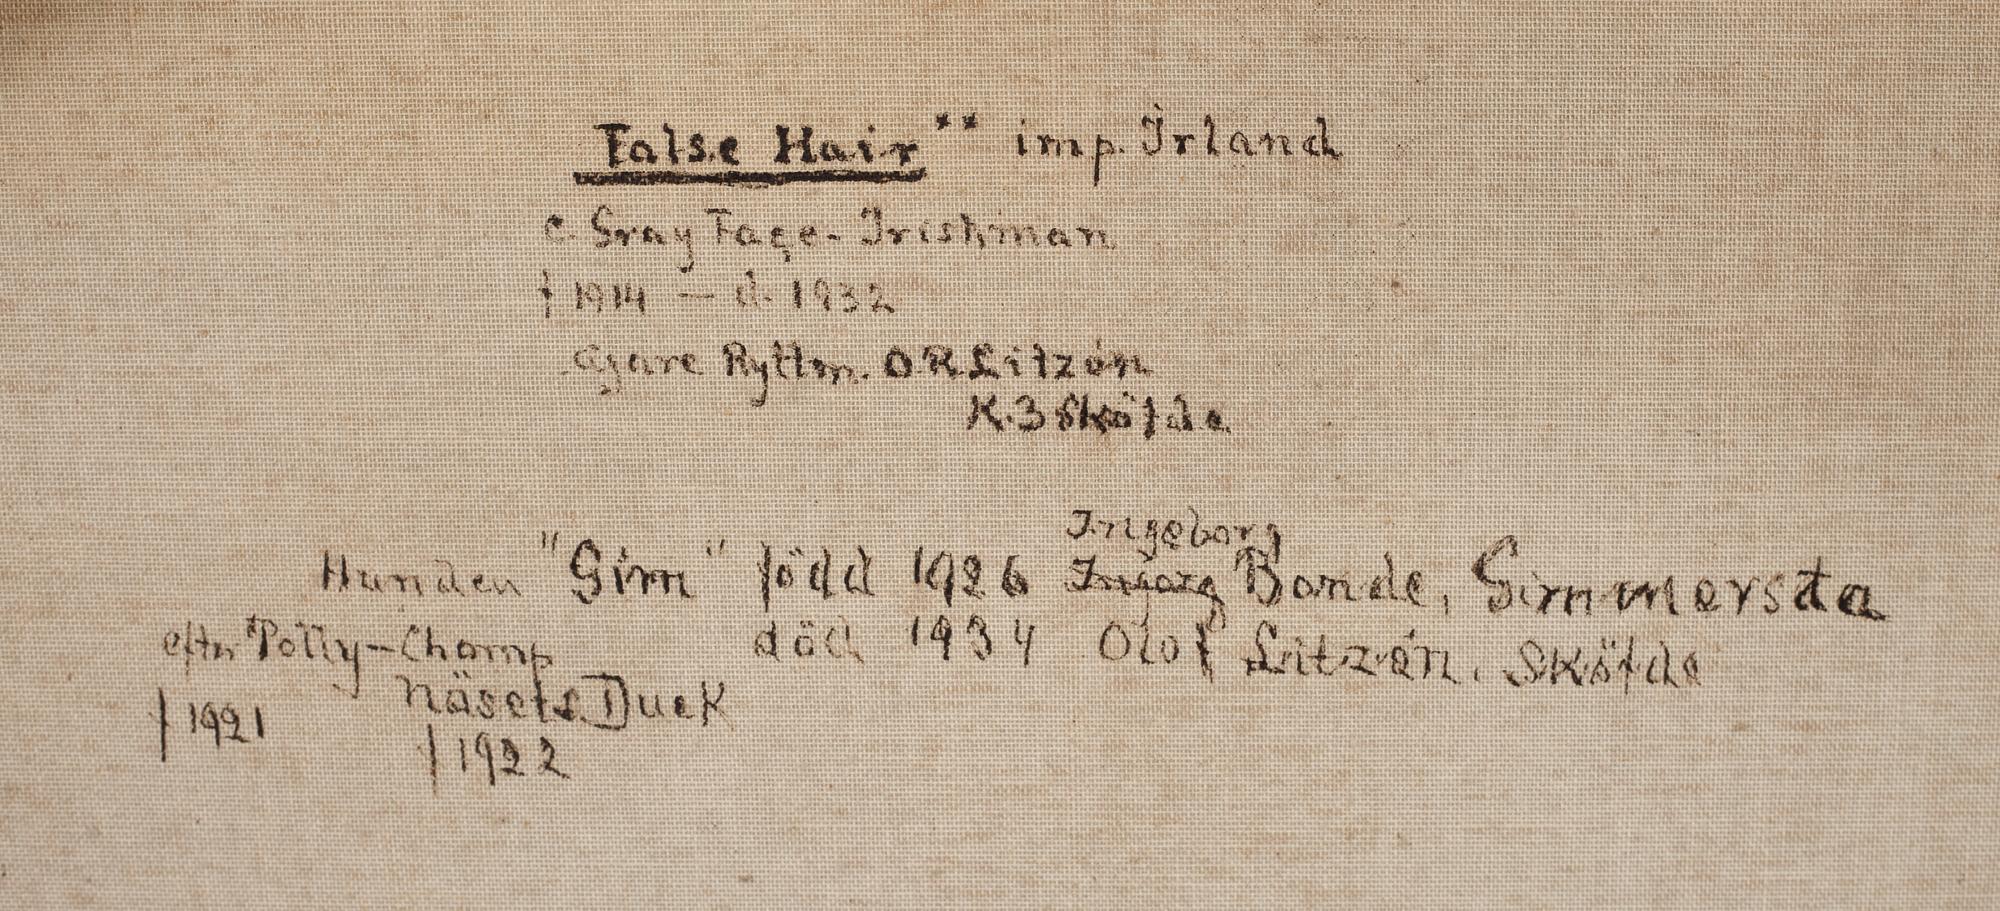 False Hair ** imp. Irland
e. Gray Face - Irishman
f 1914 — d. 1932
ägare Ryttm. O R Litzén
K.3 Sköfde
Ingeborg
Hunden "Sim" född 1926 Bonde, Simmersta
eftr. Polly - Champ död 1934 Olof Litzén. Sköfde
Näsets Duck
f 1921
f 1922